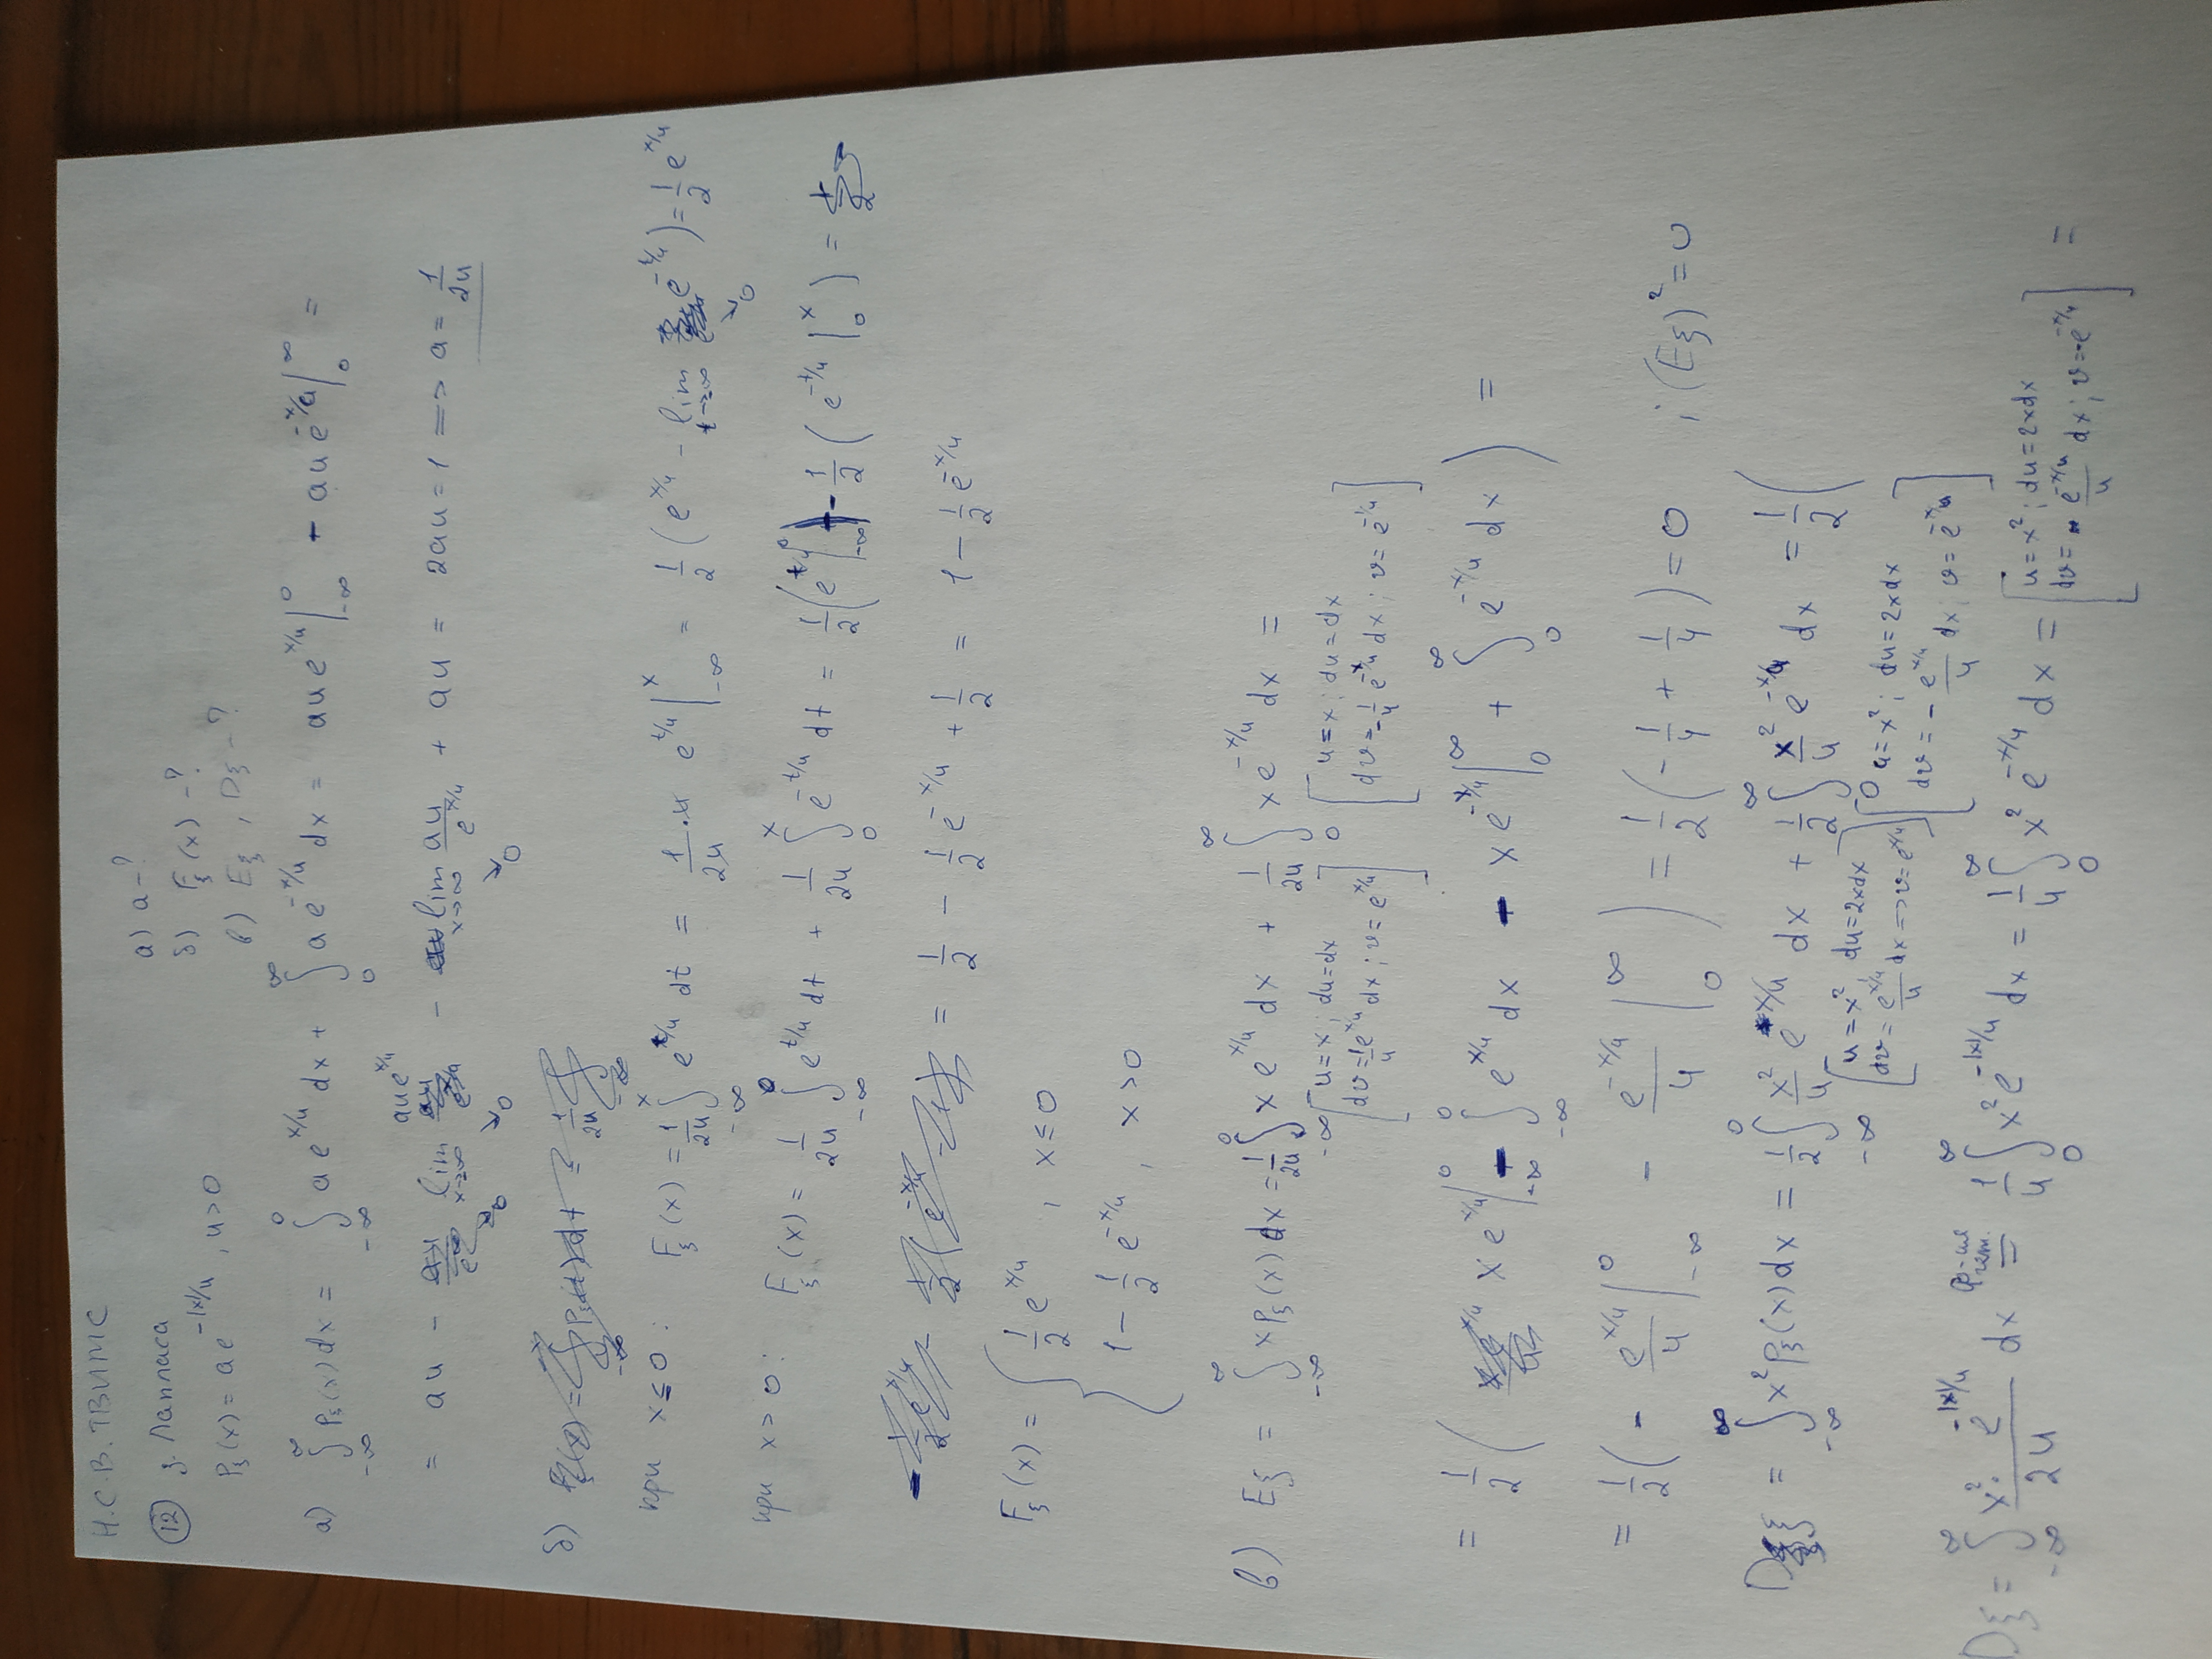 Н.С.В. ТВИМС
12 з. Лапласа
P_ξ(x) = a e^{-|x|/u}, u>0
а) a - ?
б) F_ξ(x) - ?
в) Eξ, Dξ - ?
а) ∫_{-∞}^{∞} P_ξ(x) dx = ∫_{-∞}^{0} a e^{x/u} dx + ∫_{0}^{∞} a e^{-x/u} dx = a u e^{x/u} |_{-∞}^{0} - a u e^{-x/a} |_{0}^{∞} =
= au - lim_{x→-∞} au e^{x/u} - lim_{x→∞} au/e^{x/u} + au = 2au = 1 => a = 1/2u
↘0 ↘0
б)
при x ≤ 0: F_ξ(x) = 1/2u ∫_{-∞}^{x} e^{t/u} dt = 1/2u · u e^{t/u} |_{-∞}^{x} = 1/2 (e^{x/u} - lim_{t→∞} e^{-t/u}) = 1/2 e^{x/u}
↘0
при x > 0: F_ξ(x) = 1/2u ∫_{-∞}^{0} e^{t/u} dt + 1/2u ∫_{0}^{x} e^{-t/u} dt = 1/2 (e^{t/u} |_{-∞}^{0}) - 1/2 (e^{-t/u} |_{0}^{x}) =
= 1/2 - 1/2 e^{-x/u} + 1/2 = 1 - 1/2 e^{-x/u}
F_ξ(x) = { 1/2 e^{x/u}, x ≤ 0
1 - 1/2 e^{-x/u}, x > 0
в) Eξ = ∫_{-∞}^{∞} x P_ξ(x) dx = 1/2u ∫_{-∞}^{0} x e^{x/u} dx + 1/2u ∫_{0}^{∞} x e^{-x/u} dx =
[u = x; du = dx] [u = x; du = dx]
[dv = 1/u e^{x/u} dx; v = e^{x/u}] [dv = -1/u e^{-x/u} dx; v = e^{-x/u}]
= 1/2 ( x e^{x/u} |_{-∞}^{0} - ∫_{-∞}^{0} e^{x/u} dx - x e^{-x/u} |_{0}^{∞} + ∫_{0}^{∞} e^{-x/u} dx ) =
= 1/2 ( - e^{x/u}/u |_{-∞}^{0} - e^{-x/u}/u |_{0}^{∞} ) = 1/2 ( - 1/u + 1/u ) = 0 ; (Eξ)² = 0
Dξ = ∫_{-∞}^{∞} x² P_ξ(x) dx = 1/2 ∫_{-∞}^{0} x²/u e^{x/u} dx + 1/2 ∫_{0}^{∞} x²/u e^{-x/u} dx = 1/2 (
[u = x², du = 2xdx] [u = x²; du = 2xdx]
[dv = e^{x/u}/u dx => v = e^{x/u}] [dv = - e^{-x/u}/u dx; v = e^{-x/u}]
Dξ = ∫_{-∞}^{∞} x² · e^{-|x|/u} / 2u dx = 1/u ∫_{0}^{∞} x² e^{-|x|/u} dx = 1/u ∫_{0}^{∞} x² e^{-x/u} dx = [u = x²; du = 2xdx] =
[dv = - e^{-x/u}/u dx; v = -e^{-x/u}]